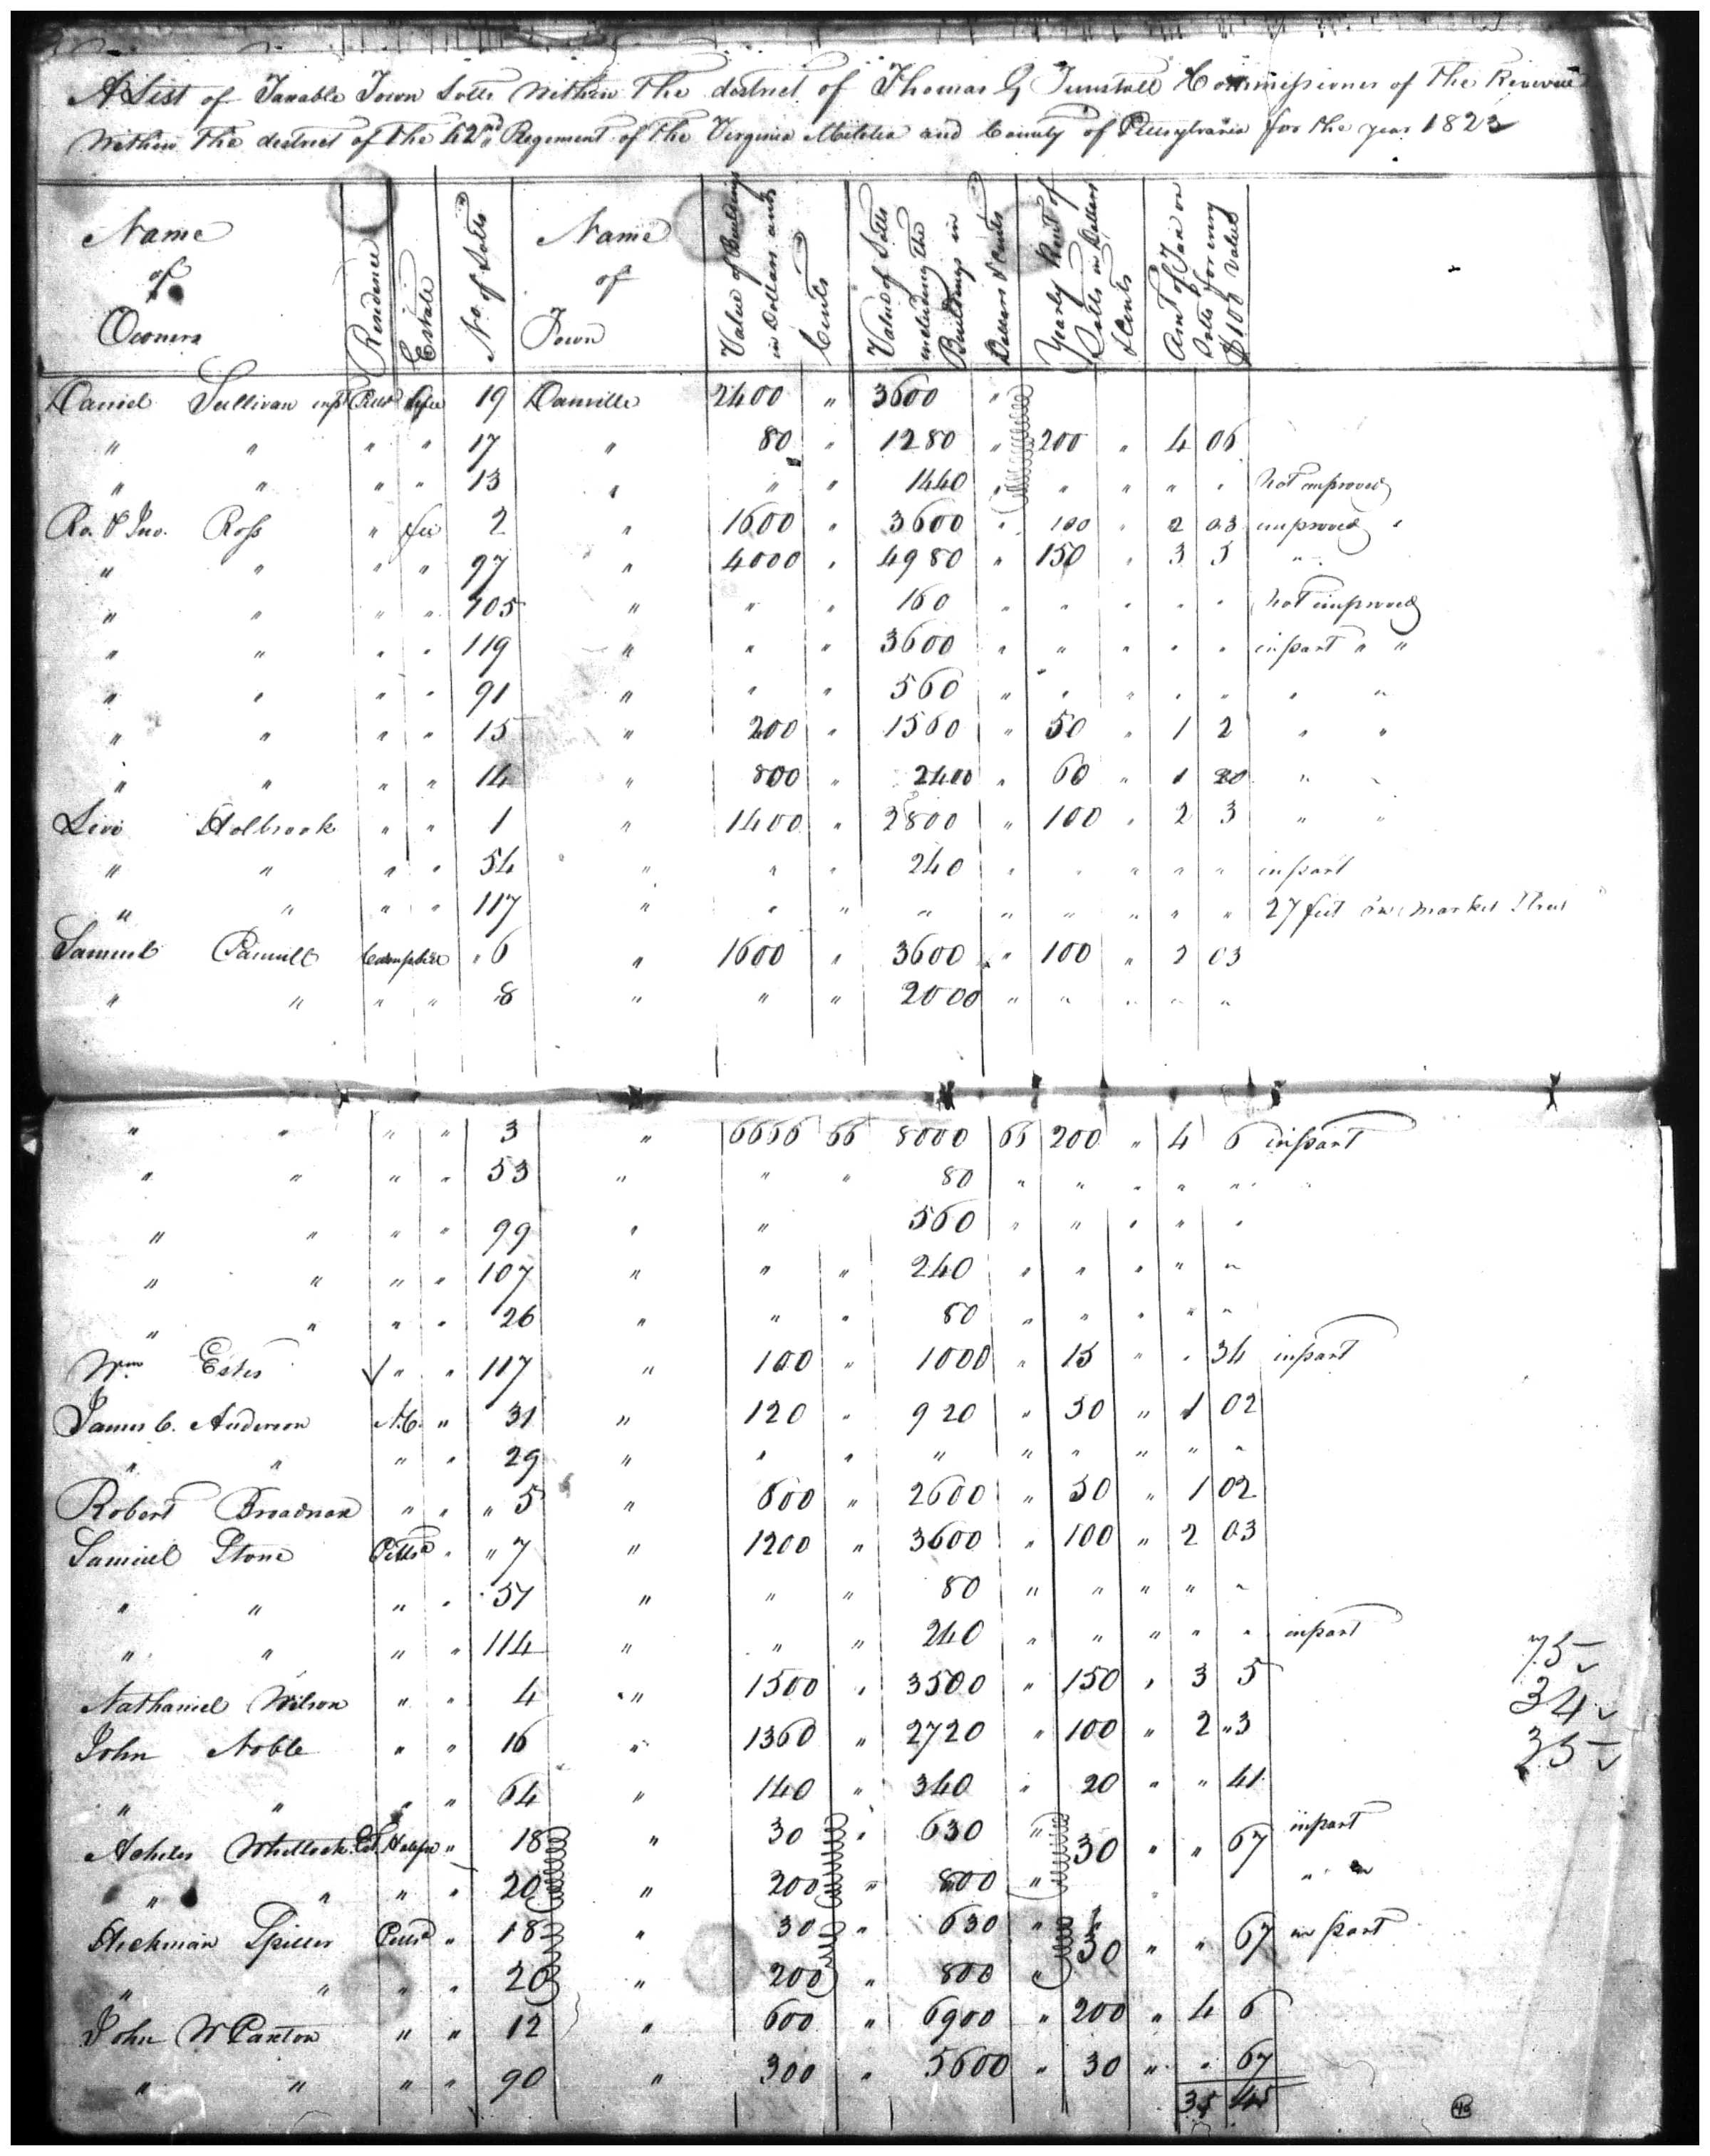 A List of Taxable Town Lotts Within the district of Thomas G Tunstall Commissioner of the Revenue
Within the district of the 42nd Regement of the Virginia Militia and County of Pittsylvania for the year 1823
Name of Owners Residence Estate No. of Lotts Name of Town Value of Buildings in Dollars and Cents Value of Lotts including the Buildings in Dollars & Cents Yearly Rent of Lotts in Dollars & Cents Amt of Tax on Lotts for every $100 Value
Daniel Sullivan 19 Danville 2400 " 3600 "
" " " " 17 " 80 " 1280 " 200 " 4 06
" " " " 13 " " " 1440 " " " " " not improved
Ro. & Jno. Ross " fee 2 " 1600 " 3600 " 100 " 2 03 improved "
" " " " 97 " 4000 " 4980 " 150 " 3 5 "
" " " " 105 " " " 160 " " " " " not improved
" " " " 119 " " " 3600 " " " " " inpart " "
" " " " 91 " " " 560 " " " " " " "
" " " " 15 " 200 " 1560 " 50 " 1 2 " "
" " " " 14 " 800 " 2400 " 60 " 1 20 " "
Levi Holbrook " " 1 " 1400 " 2800 " 100 " 2 3 " "
" " " " 54 " " " 240 " " " " " inpart
" " " " 117 " " " " " " " " " 27 feet on market Street
Samuel Pannill Campbell " 6 " 1600 " 3600 " 100 " 2 03
" " " " 8 " " " 2000 " " " " "
" " " " 3 " 6666 66 8000 66 200 " 4 6 inpart
" " " " 53 " " " 80 " " " " "
" " " " 99 " " 560 " " " " "
" " " " 107 " " " 240 " " " " "
" " " " 26 " " " 80 " " " " "
Wm Estes " " 117 " 100 " 1000 " 15 " " 34 inpart
James C. Anderson N.C. " 31 " 120 " 920 " 50 " 1 02
" " " " 29 " " " " " " " " "
Robert Broadnax " " " 5 " 800 " 2600 " 50 " 1 02
Samuel Stone Pittsa " " 7 " 1200 " 3600 " 100 " 2 03
" " " " 57 " " " 80 " " " " "
" " " " 114 " " " 240 " " " " " inpart
75
Nathaniel Wilson " " 4 " 1500 " 3500 " 150 " 3 5
34
John Noble " " 16 " 1360 " 2720 " 100 " 2 " 3
35
" " " " 64 " 140 " 340 " 20 " " 41
Achiles Whitlock Est Halifax " 18 " 30 " 630 " 30 " " 67 inpart
" " " " 20 " 200 " 800 " " "
Hickman Spiller Pittsa " 18 " 30 " 630 " 30 " " 67 in part
" " " " 20 " 200 " 800 "
John W Paxton " " 12 " 600 " 6900 " 200 " 4 6
" " " " 90 " 300 " 5600 " 30 " " 67
35 45
43